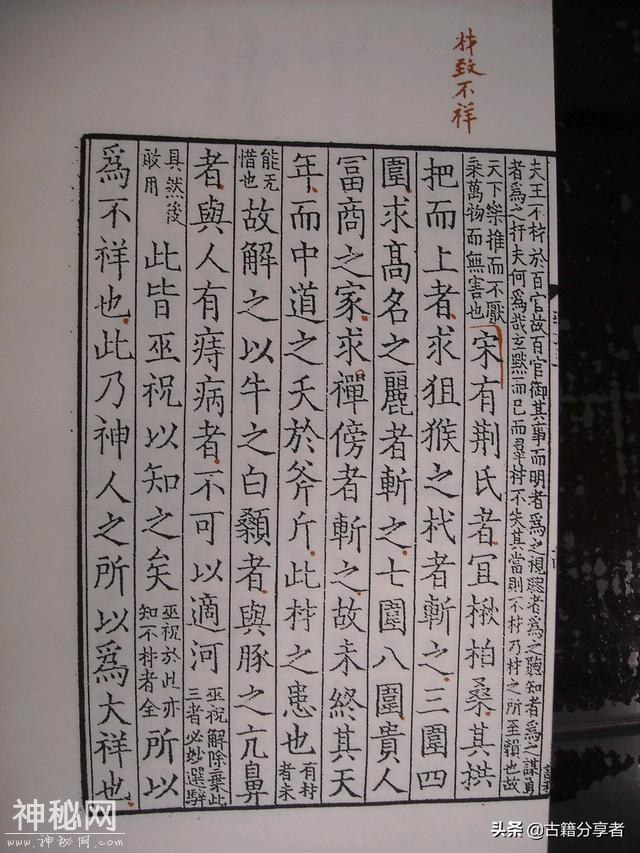 材致不祥
夫王不材於百官故百官御其事而明者爲之視聰者爲之聽知者爲之謀勇
者爲之扞夫何爲哉玄默而已而羣材不失其當則不材乃材之所至賴也故
天下樂推而不厭
乘萬物而無害也
宋有荆氏者宜楸柏桑其拱
把而上者求狙猴之杙者斬之三圍四
圍求高名之麗者斬之七圍八圍貴人
富商之家求禪傍者斬之故未終其天
年而中道之夭於斧斤此材之患也有材
者未
能无
惜也故解之以牛之白顙者與豚之亢鼻
者與人有痔病者不可以適河巫祝解除棄此
三者必妙選騂
具然後
敢用此皆巫祝以知之矣巫祝於此亦
知不材者全所以
爲不祥也此乃神人之所以爲大祥也
神秘网
www.神秘网.com
头条 @古籍分享者